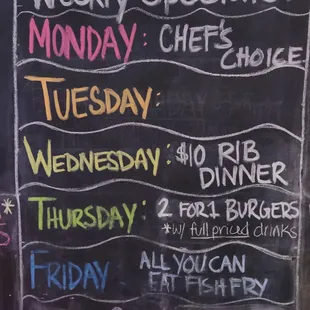 Weekly Specials
MONDAY: CHEF'S
CHOICE
TUESDAY:
WEDNESDAY: $10 RIB
DINNER
THURSDAY: 2 FOR 1 BURGERS
*w/ full priced drinks
FRIDAY ALL YOU CAN
EAT FISH FRY